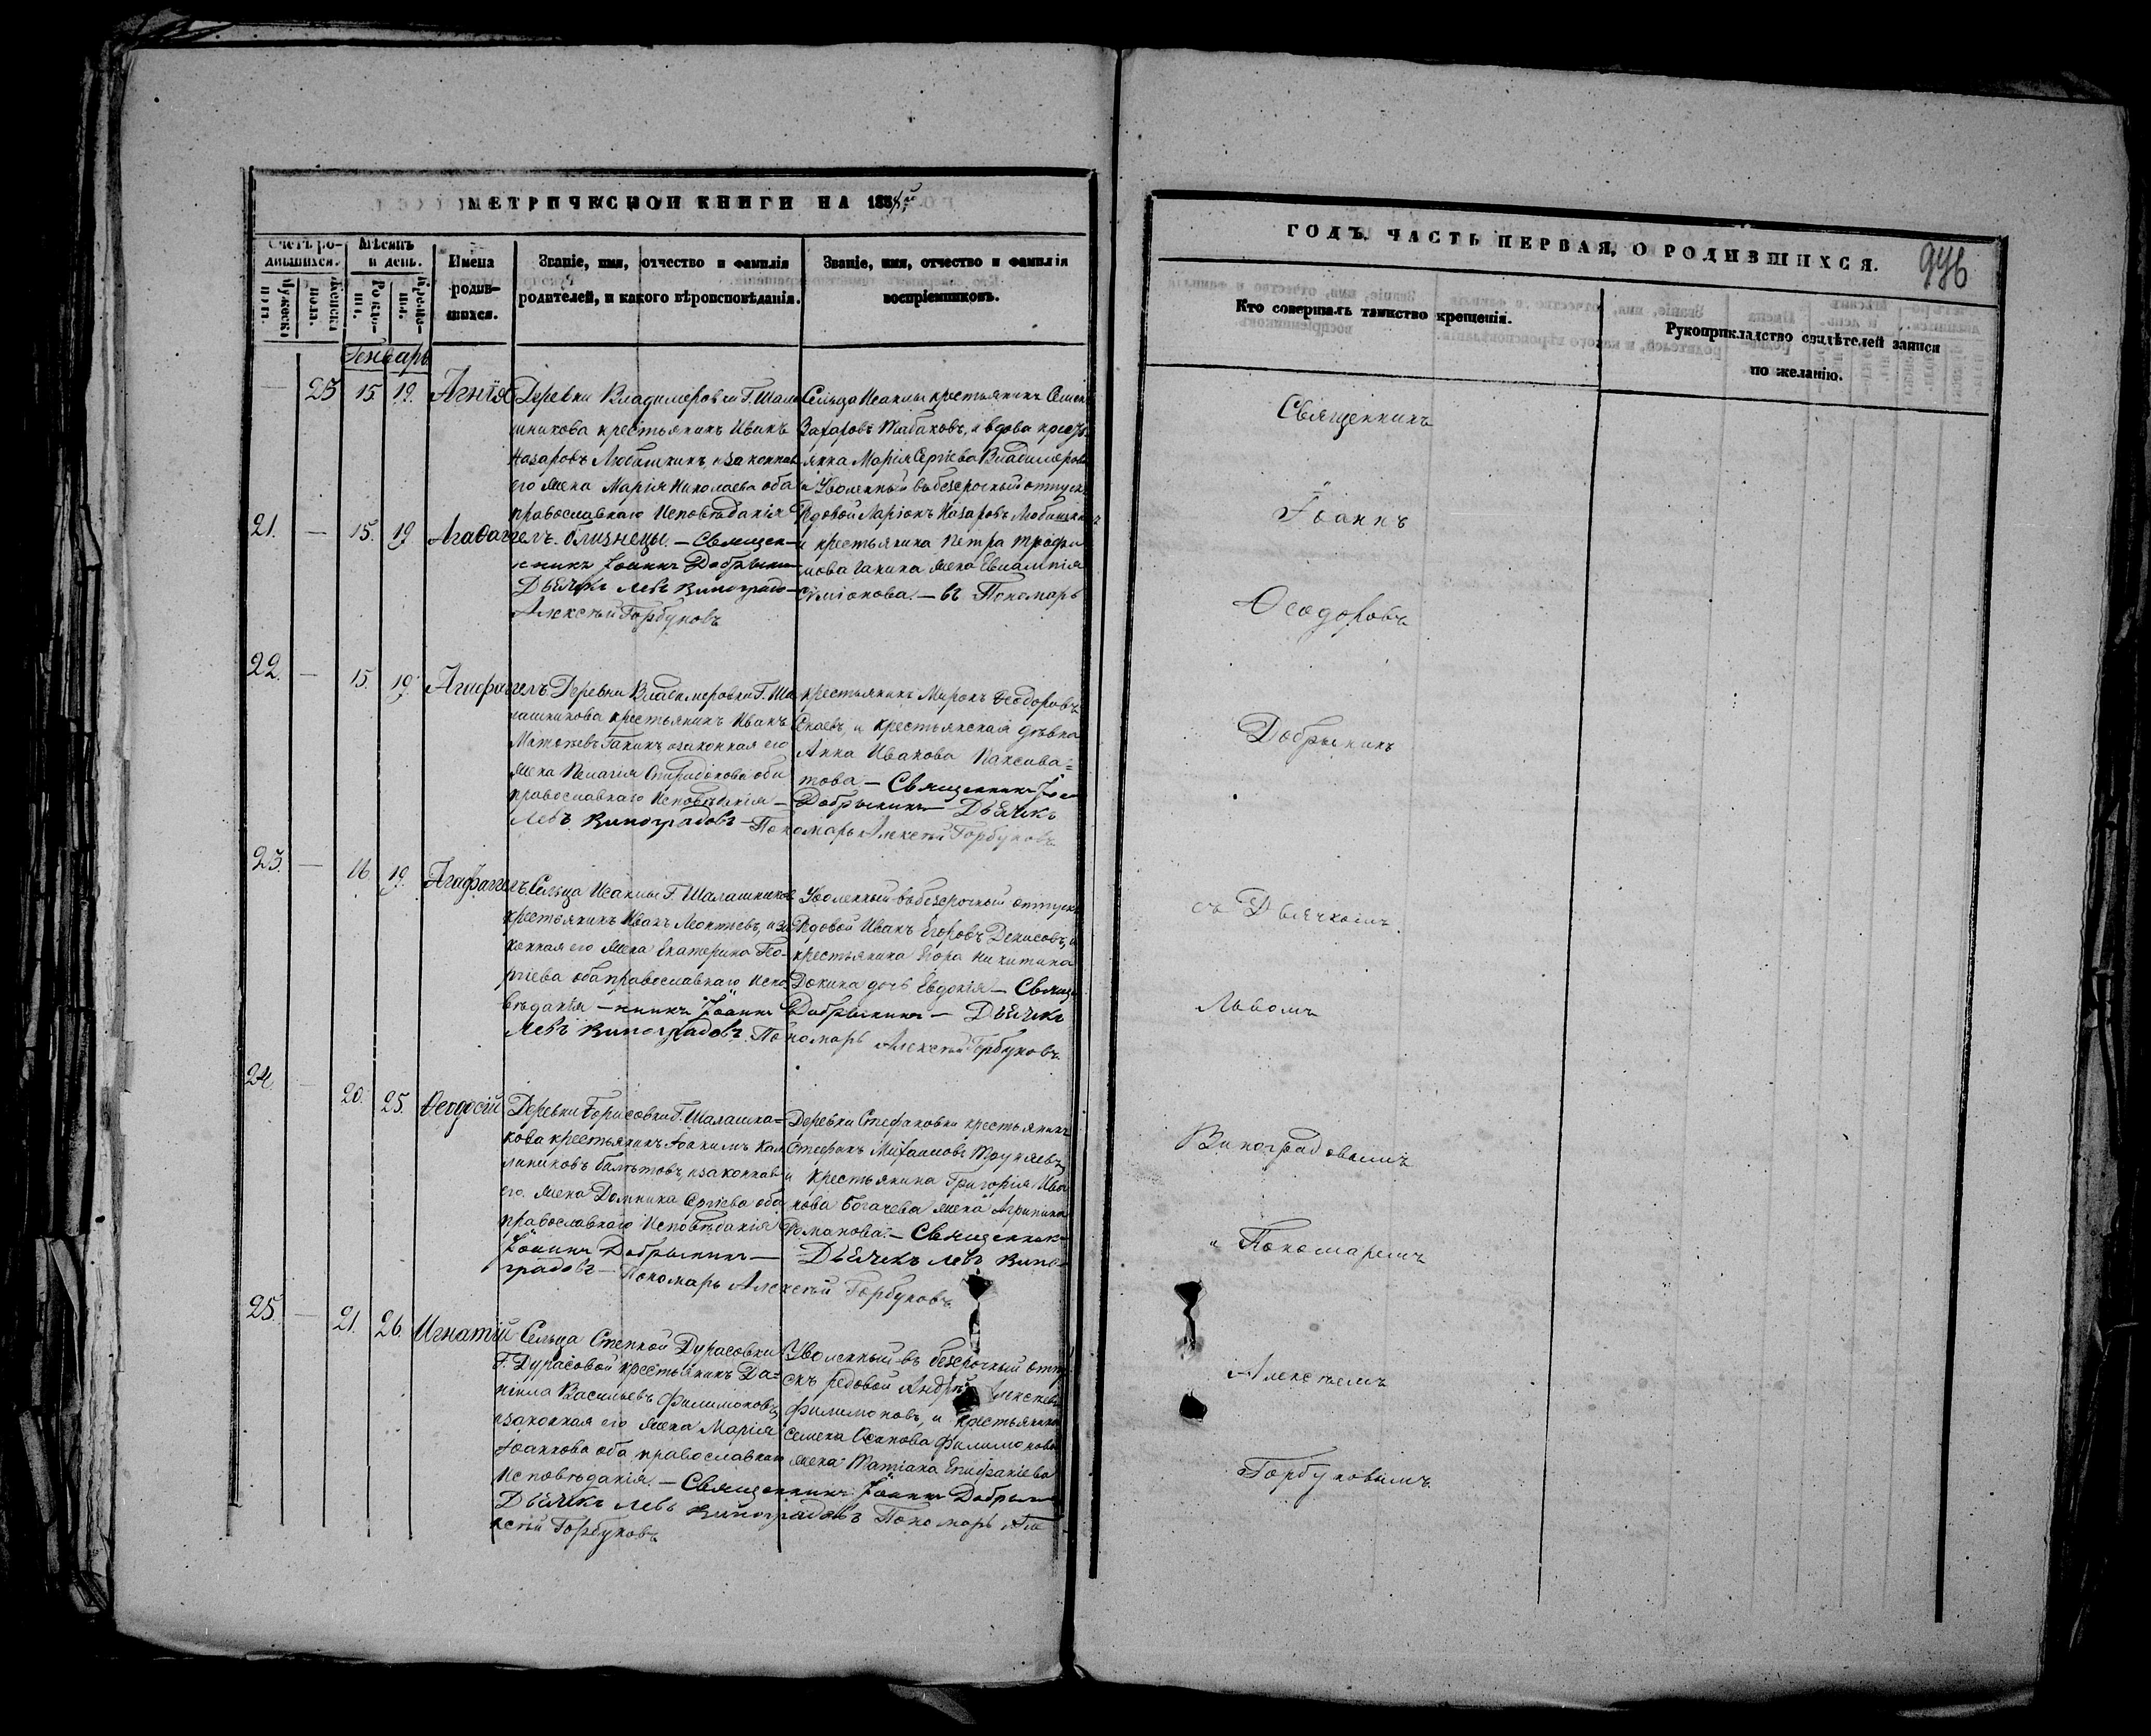 МЕТРИЧЕСКОЙ КНИГИ НА 185
Счетъ ро-
дившихся.
Мужеска
пола.
Женска
пола.
Мѣсяцъ
и день.
Рожде-
нія.
Креще-
нія.
Имена
родив-
шихся.
Званіе, имя, отчество и фамилія
родителей, и какого вѣроисповѣданія.
Званіе, имя, отчество и фамилія
воспріемниковъ.
Генварь
— 23 15 19. Агнія
Деревни Владимеровки Г. Шала
шникова крестьянинъ Иванъ
Назаровъ Любишкинъ, изаконная
его жена Марія Николаева оба
православнаго Исповѣданія
21. — 15. 19 Агаѳангелъ. близнецы. — Священ-
никъ Іоаннъ Добрынин
Дьячкъ Левъ Виноградо-
Алексѣй Горбуновъ
Сельца Исаклы крестьянинъ Семенъ
Захаровъ Табаковъ, и вдова крест
янка Марія Сергіева Владимірова
и Уволенный вобезсрочный отпускъ
Рядовой Ларіонъ Назаровъ Любишкинъ
и крестьянина Петра Трофи
мова Ганина жена Евлампія
Симіонова. — въ Пономарь
22. — 15. 19. Агафангелъ
Деревни Владимеровки Г. Ша
лашникова крестьянинъ Иванъ
Матвѣевъ Ганинъ изаконная его
жена Пелагія Спиридонова оба
православнаго Исповѣданія —
Левъ Виноградовъ — Пономарь Алексѣй Горбуновъ
крестьянинъ Миронъ Ѳеодоровъ
и крестьянская дѣвка
Анна Иванова
това — Священникъ Іоа
Добрынинъ — Дьячкъ
23. — 16 19. Агафангелъ.
Сельца Исаклы Г. Шалашникова
крестьянинъ Иванъ Леонтьевъ, иза
конная его жена Екатерина Ге-
ргіева оба православнаго Испо
вѣданія — никъ Іоаннъ Добрынинъ — Дьячкъ
Левъ Виноградовъ. Пономарь Алексѣй Горбуновъ
Уволенный вобезсрочный отпускъ
Рядовой Иванъ Егоровъ Денисовъ, и
крестьянина Егора Никитина
дочь Евдокія — Свящ
24. — 20. 25. Ѳеодосій
Деревни Борисовки Г. Шалашни-
кова крестьянинъ Іоакимъ Кал
линиковъ изаконная
его жена Домника Сергіева оба
православнаго Исповѣданія
Іоаннъ Добрынинъ — Дьячекъ Левъ Вино-
градовъ — Пономарь Алексѣй Горбуновъ
Деревни Стефановки крестьянинъ
Стефанъ Михаиловъ
и крестьянина Григорія Ива
нова Богачева жена Агрипина
Романова. — Священник-
25. — 21. 26. Игнатій
Сельца Степной Дурасовки
Г. Дурасовой крестьянинъ Да-
ніила Васильевъ Филимоновъ
изаконная его жена Марія
Іоаннова оба православнаго
Исповѣданія. — Священникъ Іоаннъ Добрын
Дьячкъ Левъ Виноградовъ Пономарь Але
ксѣй Горбуновъ
Уволенный въ безсрочный отпу
скъ редовой Андрей Алексѣевъ
Филимоновъ, и крестьянина
Семена Осипова Филимонова
жена Татіана Епифаніева
ГОДЪ. ЧАСТЬ ПЕРВАЯ, О РОДИВШИХСЯ.
946
Кто совершалъ таинство крещенія.
Рукоприкладство свидѣтелей записи
по желанію.
Священникъ
Іоаннъ
Ѳеодоровъ
Добрынинъ
съ Дьячкомъ
Львомъ
Виноградовымъ
и Пономаремъ
Алексѣемъ
Горбуновымъ.